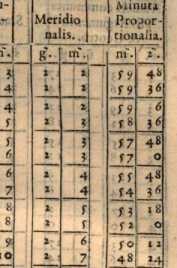 Minuta
Meridio Propor-
nalis. tionalia.
m̄. g̃. m̄. m̄. 2̃.
3 2 2 59 48
4 2 2 59 36
4 2 2 59 6
5 2 3 58 36
5 2 3 57 48
6 2 3 57 0
6 2 4 55 48
7 2 4 54 36
8 2 5 53 18
8 2 5 52 0
9 2 6 50 12
10 2 7 48 24